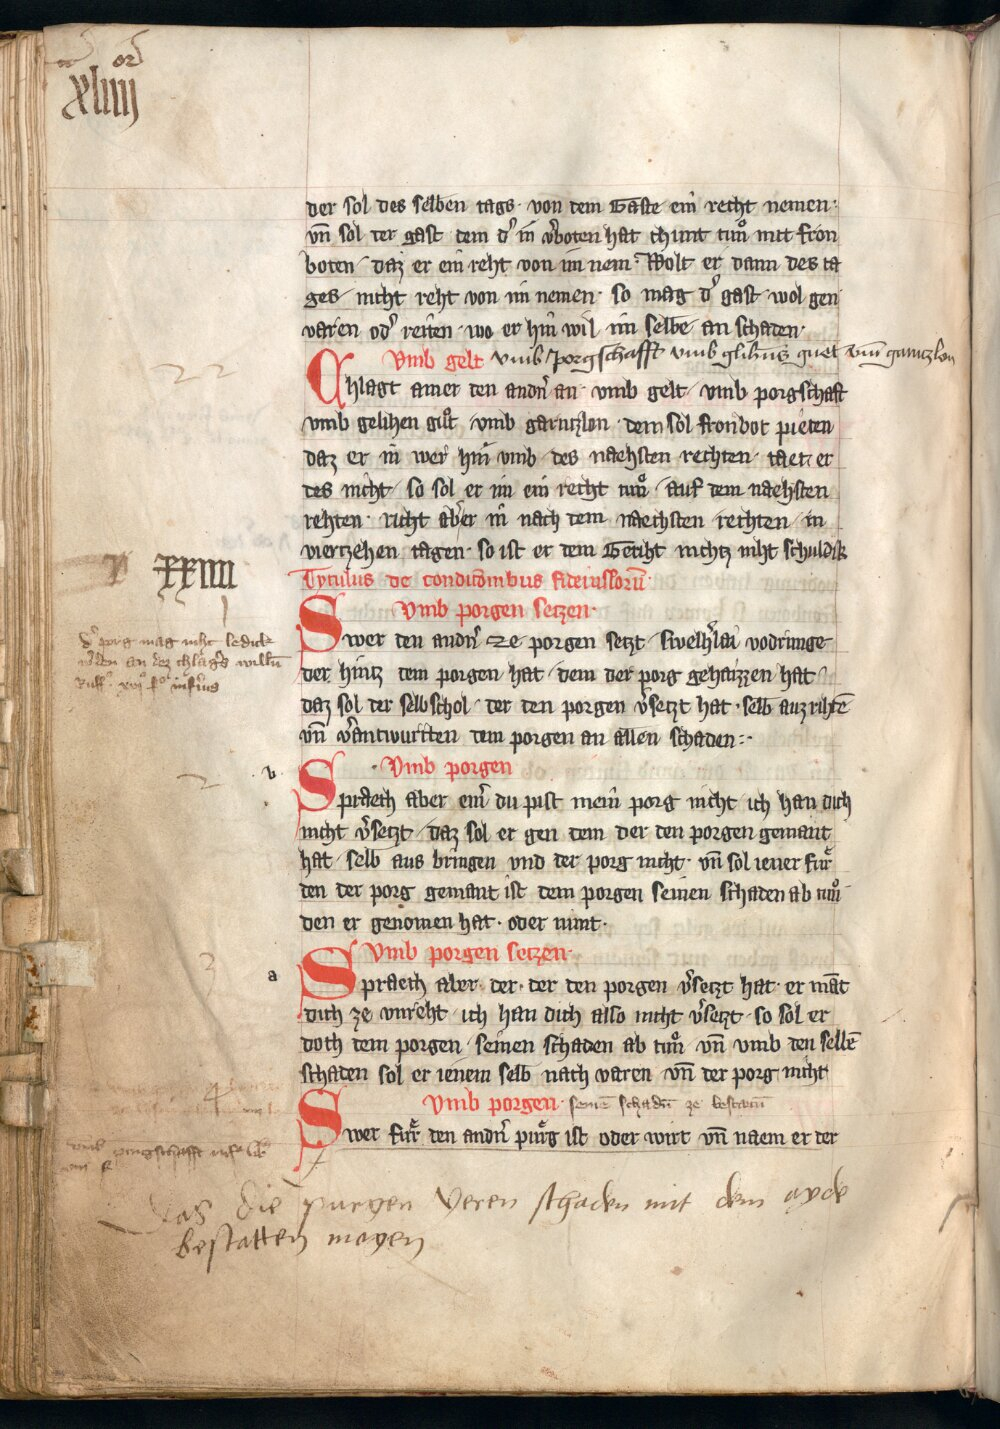 xliiii
der sol des selben tags · von dem Gaste ein recht nemen ·
vn̄ sol der gast dem dˢ in v̾boten hat chunt tuͦn mit fron
boten / daz er ein reht von im nem · Wolt er dann des ta
ges / nicht reht von im nemen · so mag dˢ gast wol gen
varen odˢ reiten · wo er hin wil im selbē an schaden ·
Vmb gelt vmb porgschafft vmb glihns guet vm̄ garnczlon
Chlagt ainer den andn̄ an · vmb gelt / vmb porgschaft
vmb gelihen guͦt / vmb garntzlon · dem sol fronbot pieten
daz er in wer hin vmb · des naehsten rechten · taet er
des nicht / so sol er im ein recht tuͦn / auf dem naehsten
rehten · richt aber in nach dem naechsten rechten / in
viertzehen tagen · so ist er dem Geriht nichtz niht schuldik
Tytulus de condicōnibus fideiussorū ·
xxiiii
Vmb porgen setzen ·
Swer den andn̄ ze porgen setzt / swelh̾lai vodrunge
der hintz dem porgen hat / dem der porg gehaizzen hat
daz sol der selbschol / der den porgen v̾setzt hat · selb auzrihtē
vn̄ v̾antwurtten dem porgen an allen schaden :·
dˢ porg mag niht ledick
w̾den an dez chlag̾s willn̄
b
Vmb porgen
2
Spraech aber einˢ du pist mein porg nicht / ich han dich
nicht v̾setzt / daz sol er gen dem der den porgen gemant
hat / selb aus bringen vnd der porg nicht · vn̄ sol iener fuͤr
den der porg gemant ist dem porgen seinen schaden ab tuͦn
den er genomen hat · oder nimt ·
Vmb porgen setzen ·
3
a
Spraech aber · der · der den porgen v̾setzt hat · er māt
dich ze vnreht / ich han dich also nicht v̾setzt · so sol er
doch dem porgen / seinen schaden ab tuͦn / vn̄ vmb den selbē
schaden sol er ienem selb nach varen vn̄ der porg nicht
4
Vmb porgen · seinē schadn̄ ze bestātn̄
Swer fuͤr den andn̄ puͤrg ist oder wirt vn̄ naem er der
Das die purgen Yeren schaden mit dem ayde
bestatten mogen